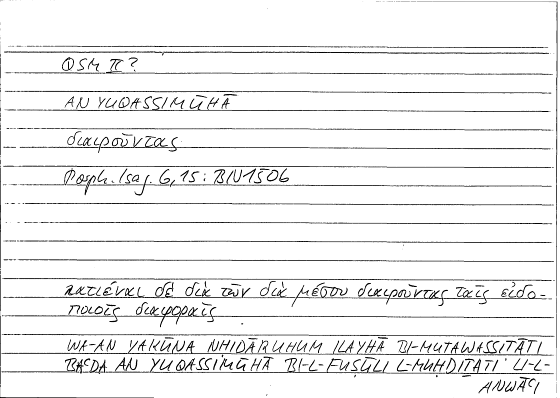 QSM II?
AN YUQASSIMŪHĀ
διαιροῦντας
Porph. Isag. 6,15: BN1506
κατιέναι δὲ διὰ τῶν διὰ μέσου διαιροῦντας ταῖς εἰδο-
ποιοῖς διαφοραῖς
WA-AN YAKŪNA NHIDĀRUHUM ILAYHĀ BI-MUTAWASSIṬĀTI
BAʿDA AN YUQASSIMŪHĀ BI-L-FUṢŪLI L-MUḤDIṮATI LI-L-
ANWĀʿI